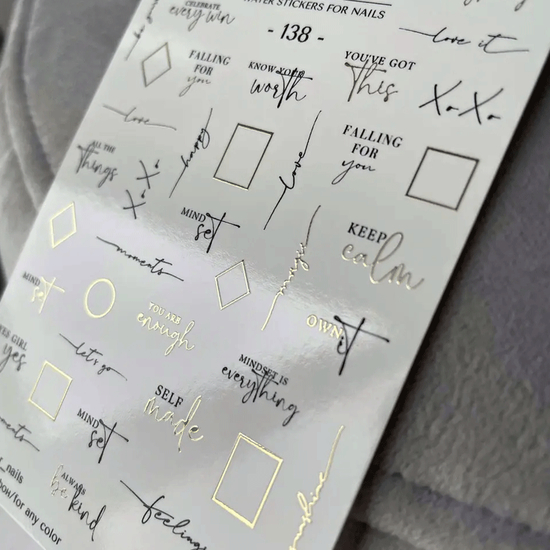 WATER STICKERS FOR NAILS
- 138 -
CELEBRATE
every win
love it
FALLING
FOR
you
KNOW YOUR
worth
YOU'VE GOT
This
X X
love
happy
love
FALLING
FOR
you
ALL THE
Things
X X
MIND
set
KEEP
calm
moments
magic
MIND
set
YOU ARE
enough
OWN
iT
GIRL
yes
let's go
MINDSET IS
everything
SELF
made
MIND
set
moments
ALWAYS
be kind
feelings
sunshine
_nails
for any color